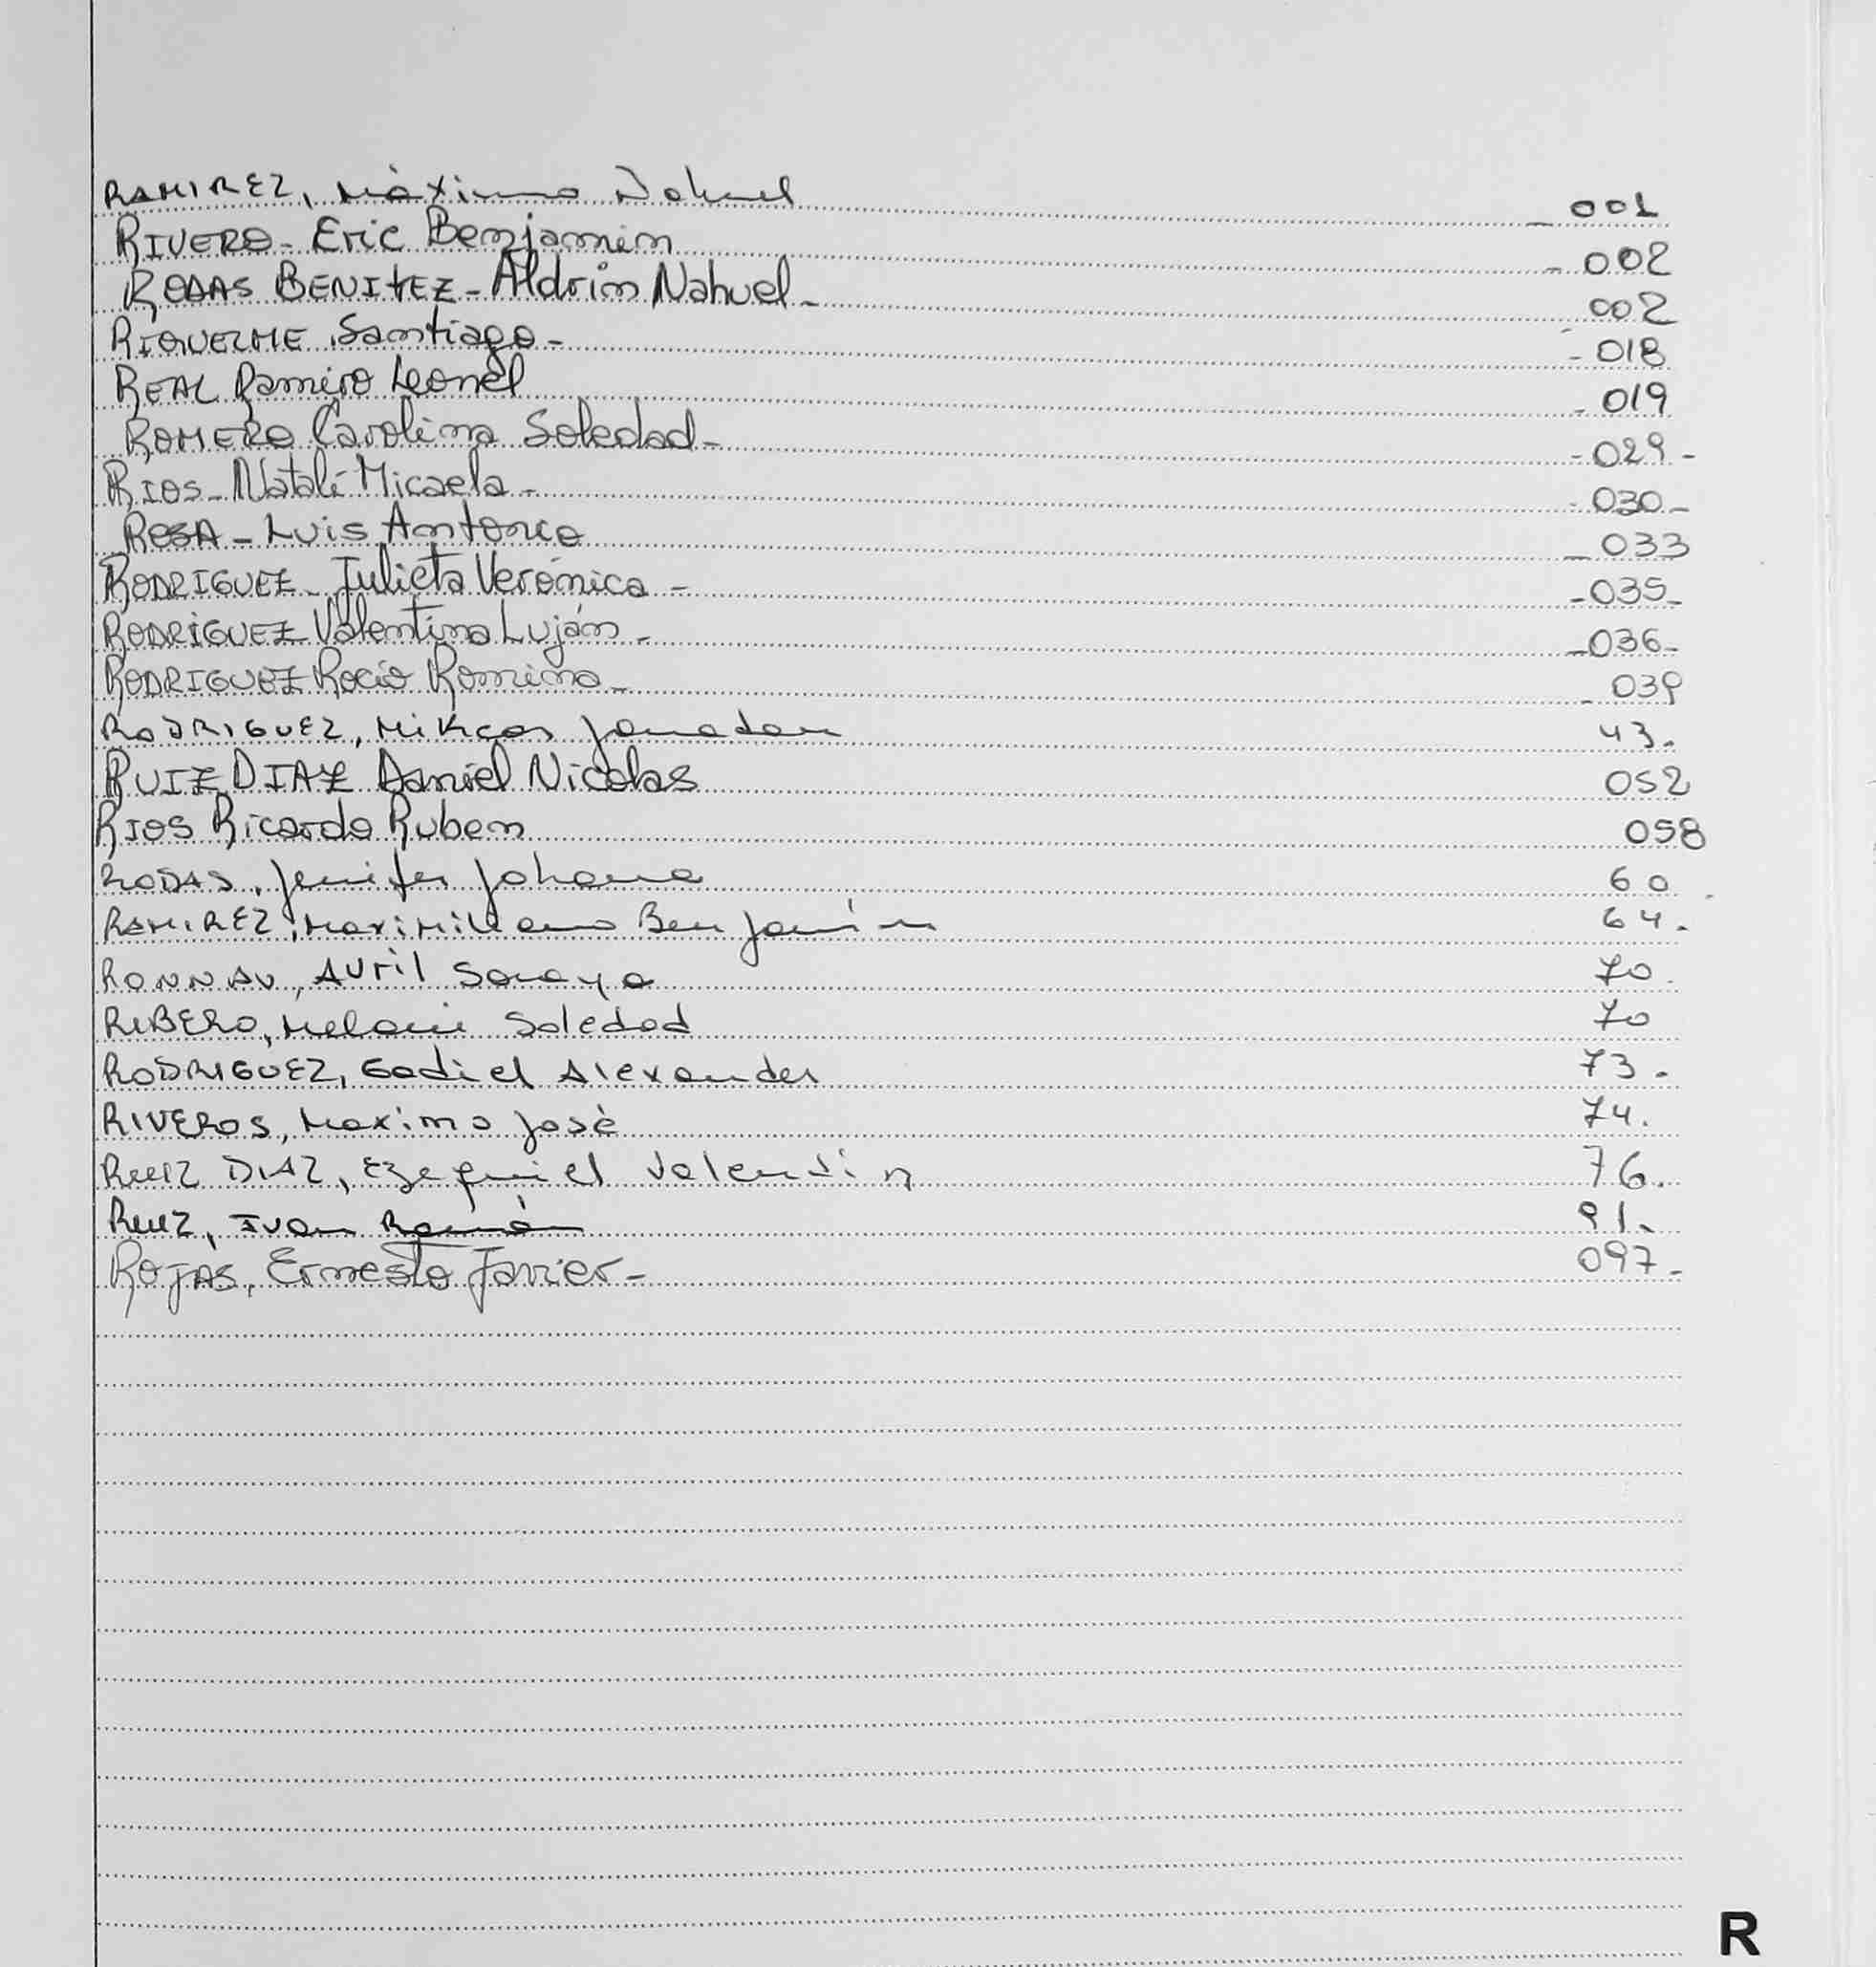 RAMIREZ, Máximo Nahuel _ 001
RIVERO - Eric Benjamin - 002
RODAS BENITEZ - Aldrin Nahuel - 002
RIQUELME Santiago - - 018
REAL Ramiro Leonel - 019
ROMERO Carolina Soledad - - 029 -
RIOS - Natalí Micaela - - 030 -
ROSA - Luis Antonio - 033
RODRIGUEZ - Julieta Verónica - - 035 -
RODRIGUEZ Valentina Luján - - 036 -
RODRIGUEZ Rocío Romina - - 039
RODRIGUEZ, Jonatan 43.
RUIZ DIAZ Daniel Nicolas 052
RIOS Ricardo Ruben 058
RODAS, Jenifer Johana 60
RAMIREZ, Maximiliano Benjamín 64.
RONNAU, Avril Soraya 70.
RIBERO, Melanie Soledad 70
RODRIGUEZ, Gadiel Alexander 73.
RIVEROS, Maximo José 74.
RUIZ DIAZ, Ezequiel Valentín 76.
RUIZ, Ivan Ramón 91.
ROJAS, Ernesto Javier - 097 -
R